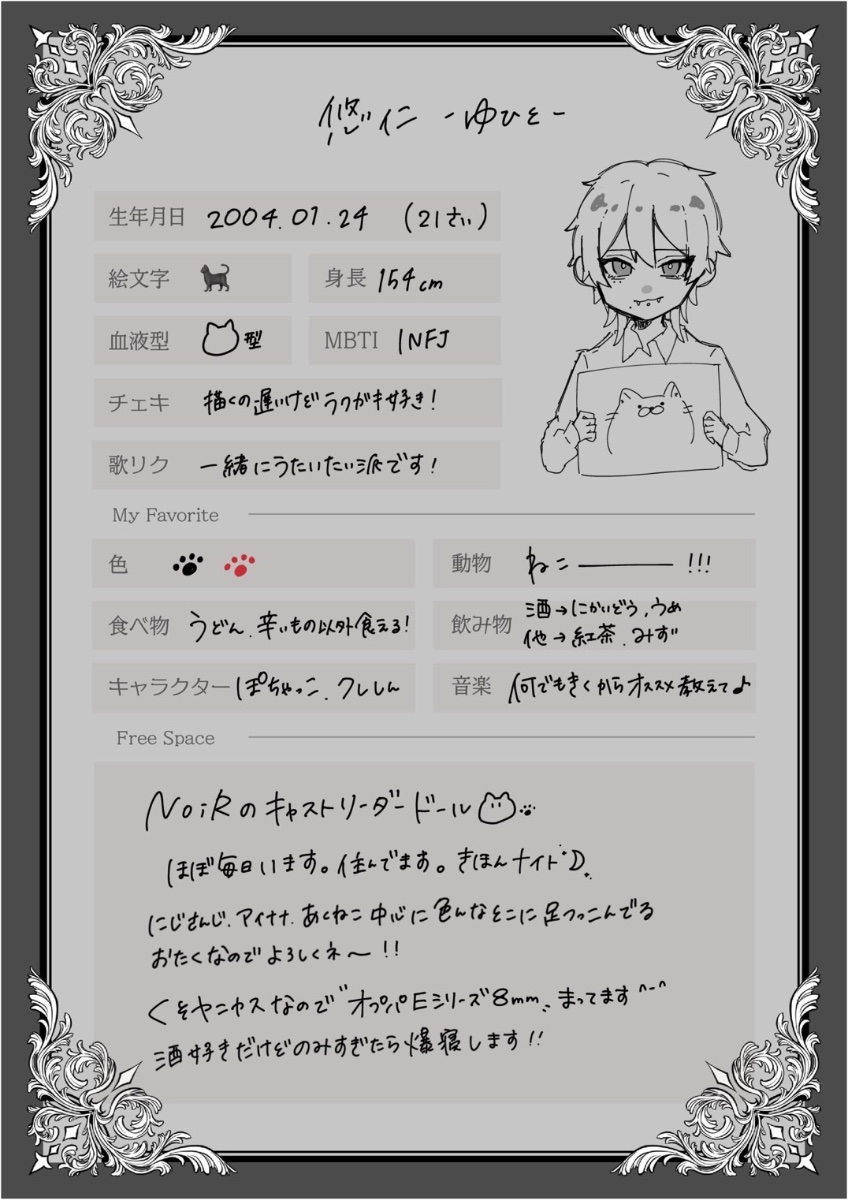 悠仁 -ゆひと-
生年月日 2004.01.24 (21さい)
絵文字 🐈‍⬛ 身長 154cm
血液型 型 MBTI INFJ
チェキ 描くの遅いけどラクガキ好き!
歌リク 一緒にうたいたい派です!
My Favorite
色 動物 ねこー!!!
食べ物 うどん、辛いもの以外食える!
飲み物 酒→にかいどう、うめ
他→紅茶、みず
キャラクター ぽちゃっこ、クレしん
音楽 何でもきくからオススメ教えて♪
Free Space
NoiRのキャストリーダードール
ほぼ毎日います。住んでます。きほんナイト
にじさんじ、アイナナ、あくねこ中心に色んなとこに足つっこんでる
おたくなのでよろしくネ〜!!
くそヤニカスなので"オプパEシリーズ8mm"まってます^-^
酒好きだけどのみすぎたら爆寝します!!